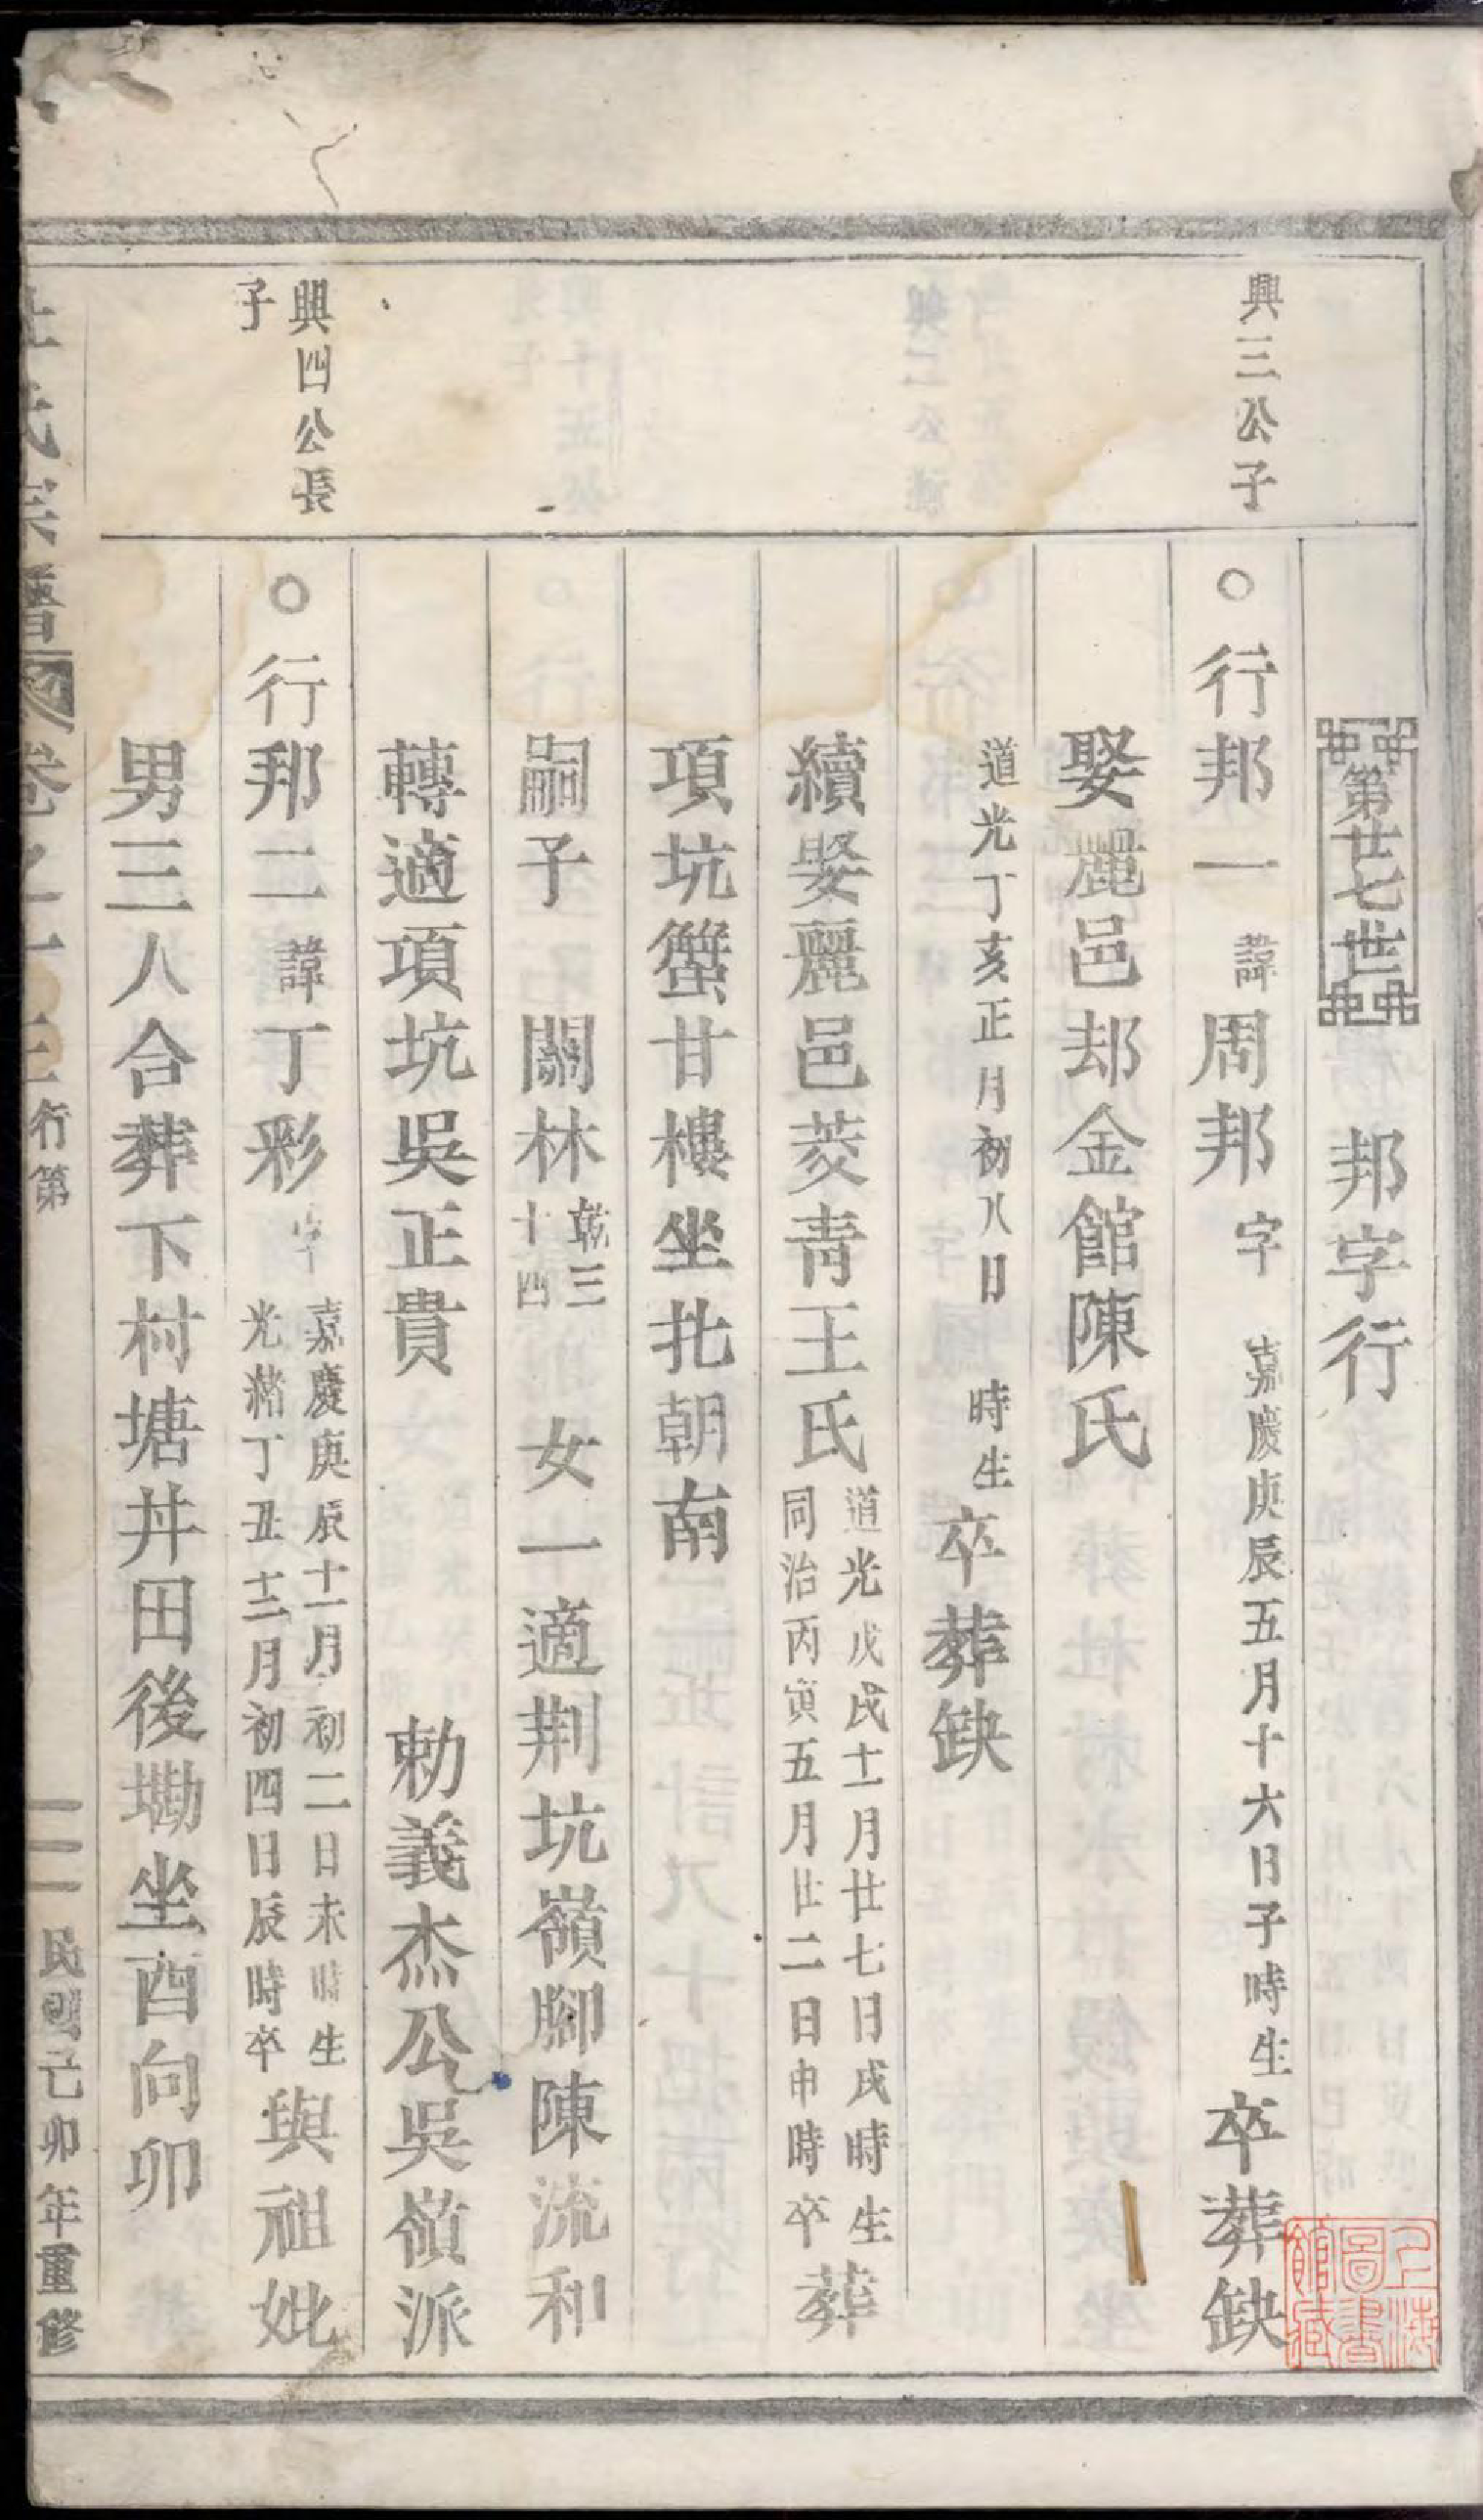 第廿七世　邦字行
興三公子
○行邦一諱周邦字　嘉慶庚辰五月十六日子時生卒葬缺
娶麗邑郄金館陳氏
道光丁亥正月初八日　時生卒葬缺
續娶麗邑菱青王氏
道光戊戌十二月廿七日戌時生
同治丙寅五月廿二日申時卒
葬
項坑蟹甘樓坐北朝南
嗣子　關林
乾三
十四
女一適荆坑嶺脚陳流和
轉適項坑吳正貴　勅義杰公吳嶺派
興四公長
子
○行邦二諱丁彩字
嘉慶庚辰十一月初二日未時生
光緒丁丑十二月初四日辰時卒
與祖妣
男三人合葬下村塘丼田後墈坐酉向卯
氏宗譜
卷之十三
行第
民國己卯年重修
上海圖書館藏